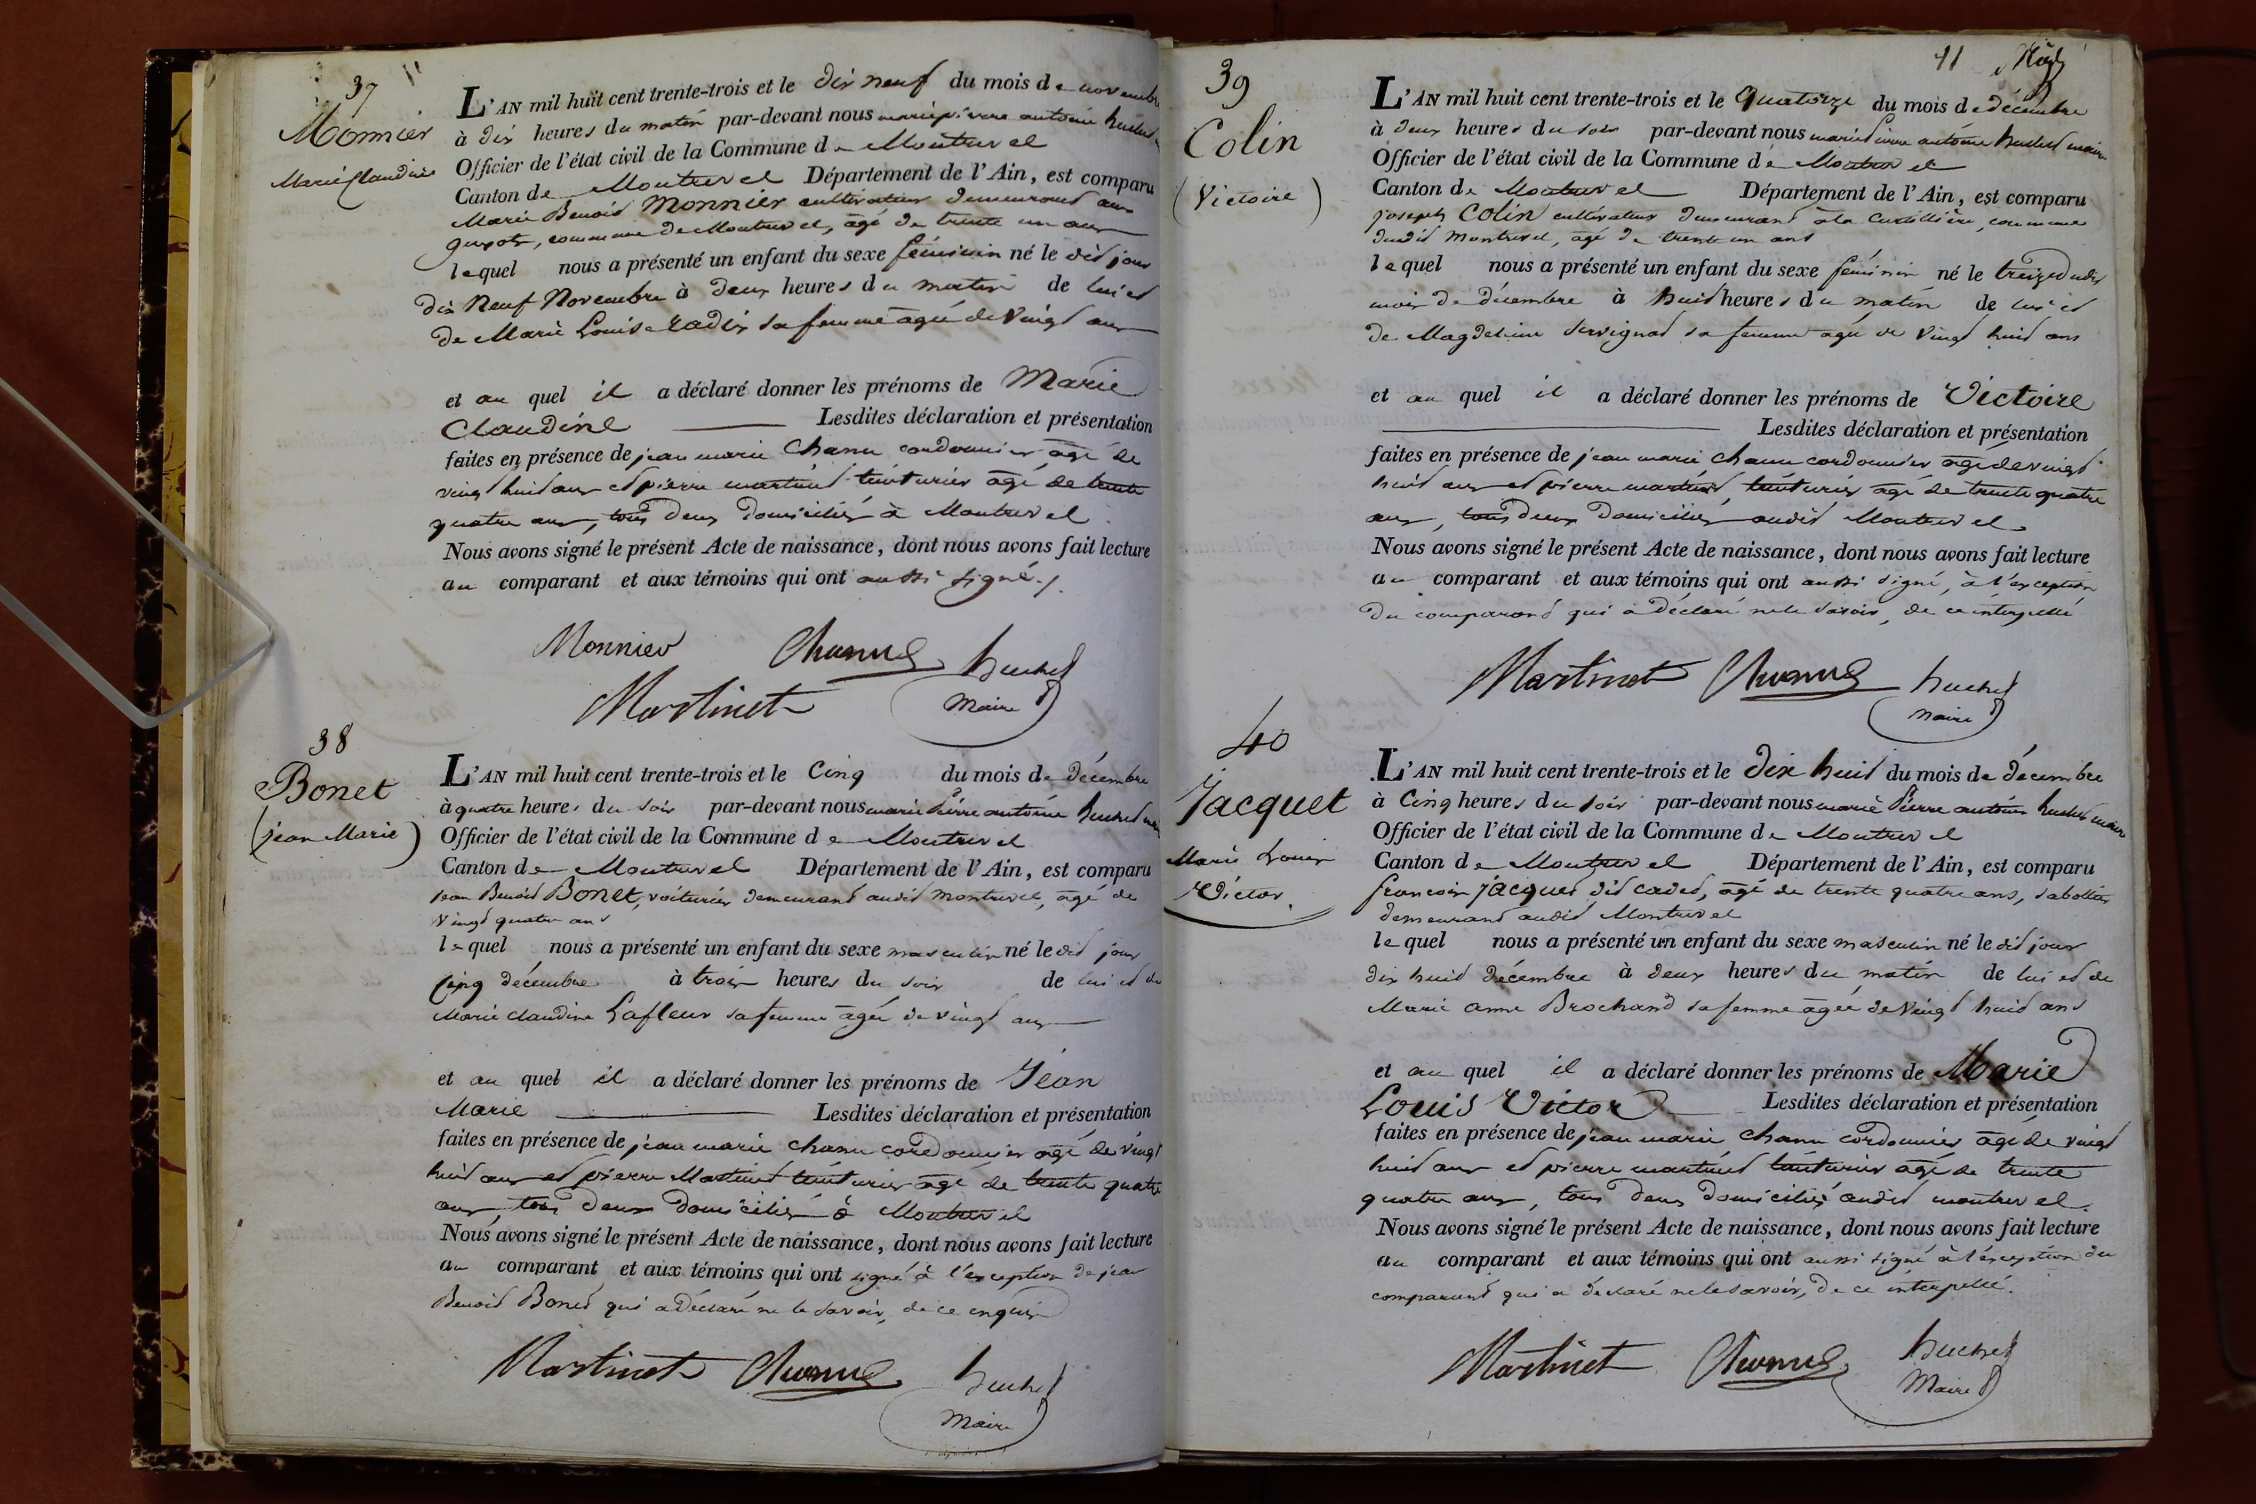 37
Monnier
Marie Claudine
L'AN mil huit cent trente-trois et le dix neuf du mois de novembre
à dix heures du matin par-devant nous marie pierre antoine huchet
Officier de l'état civil de la Commune de Montrevel
Canton de Montrevel Département de l'Ain, est comparu
Marie Benoid Monnier cultivateur demeurand aux
guyots, commune de Montrevel, agé de trente un ans
lequel nous a présenté un enfant du sexe féminin né le did jour
dix Neuf Novembre à deux heures du matin de lui et
de Marie Louise radix sa femme agée de vingt ans
et au quel il a déclaré donner les prénoms de Marie
Claudine Lesdites déclaration et présentation
faites en présence de jean marie Chanu cordonnier agé de
vingt huid ans et pierre martined teinturier agé de trente
quatre ans, tous deux domiciliés à Montrevel
Nous avons signé le présent Acte de naissance, dont nous avons fait lecture
au comparant et aux témoins qui ont aussi signé./.
Monnier Chanu huchet
Martinet Maire
38
Bonet
(jean Marie)
L'AN mil huit cent trente-trois et le Cinq du mois de décembre
à quatre heures du soir par-devant nous marie Pierre antoine huchet maire
Officier de l'état civil de la Commune de Montrevel
Canton de Montrevel Département de l'Ain, est comparu
jean Benoid Bonet, voiturier demeurand audid montrevel, agé de
vingt quatre ans
lequel nous a présenté un enfant du sexe masculin né le did jour
Cinq décembre à trois heures du soir de lui et de
Marie claudine Lafleur sa femme agée de vingt ans
et au quel il a déclaré donner les prénoms de Jean
Marie Lesdites déclaration et présentation
faites en présence de jean marie chanu cordonnier agé de vingt
huid ans et pierre Martined teinturier agé de trente quatre
ans, tous deux domiciliés à Montrevel
Nous avons signé le présent Acte de naissance, dont nous avons fait lecture
au comparant et aux témoins qui ont signé à l'exception de jean
Benoid Boned qui a déclaré ne le savoir, de ce enquis
Martinet Chanu huchet
Maire
41
39
Colin
(Victoire)
L'AN mil huit cent trente-trois et le quatorze du mois de décembre
à deux heures du soir par-devant nous marie Pierre antoine huchet maire
Officier de l'état civil de la Commune de Montrevel
Canton de Montrevel Département de l'Ain, est comparu
joseph Colin cultivateur demeurand à la Curtillière, commune
dudid Montrevel, agé de trente un ans
lequel nous a présenté un enfant du sexe féminin né le treize dudit
mois de décembre à huid heures du matin de lui et
de Magdeleine Servignad sa femme agée de vingt huid ans
et au quel il a déclaré donner les prénoms de Victoire
Lesdites déclaration et présentation
faites en présence de jean marie chanu cordonnier agé de vingt
huid ans et pierre martined, teinturier agé de trente quatre
ans, tous deux domiciliés audid Montrevel
Nous avons signé le présent Acte de naissance, dont nous avons fait lecture
au comparant et aux témoins qui ont aussi signé, à l'exception
du comparand qui a déclaré ne le savoir, de ce interpellé
Martinet Chanu huchet
Maire
40
Jacquet
Marie Louis
Victor.
L'AN mil huit cent trente-trois et le dix huid du mois de décembre
à Cinq heures du soir par-devant nous marie Pierre antoine huchet maire
Officier de l'état civil de la Commune de Montrevel
Canton de Montrevel Département de l'Ain, est comparu
francois jacquet did cadet, agé de trente quatre ans, sabottier
demeurand audid Montrevel
lequel nous a présenté un enfant du sexe masculin né le did jour
dix huid décembre à deux heures du matin de lui et de
Marie anne Brochand sa femme agée de vingt huid ans
et au quel il a déclaré donner les prénoms de Marie
Louis Victor Lesdites déclaration et présentation
faites en présence de jean marie chanu cordonnier agé de vingt
huid ans et pierre martined teinturier agé de trente
quatre ans, tous deux domiciliés audid montrevel.
Nous avons signé le présent Acte de naissance, dont nous avons fait lecture
au comparant et aux témoins qui ont aussi signé à l'exception du
comparand qui a déclaré ne le savoir, de ce interpellé.
Martinet Chanu huchet
Maire